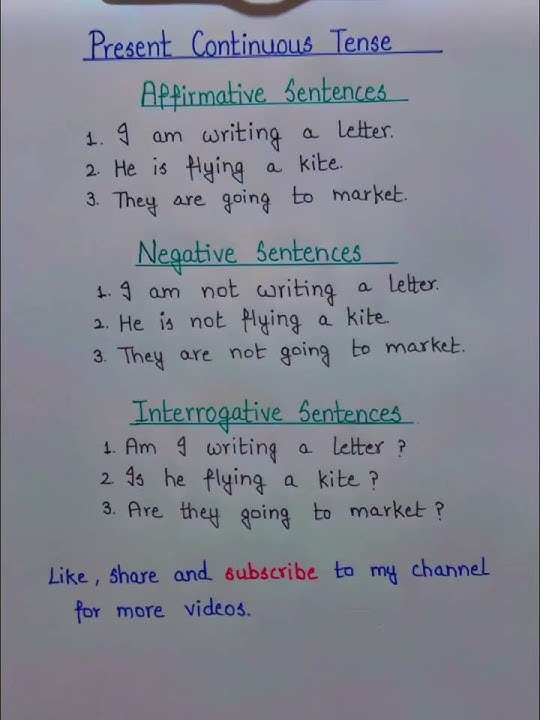 Present Continuous Tense
Affirmative Sentences
1. I am writing a letter.
2. He is flying a kite.
3. They are going to market.
Negative Sentences
1. I am not writing a letter.
2. He is not flying a kite.
3. They are not going to market.
Interrogative Sentences
1. Am I writing a letter ?
2 Is he flying a kite ?
3. Are they going to market ?
Like, share and subscribe to my channel
for more videos.